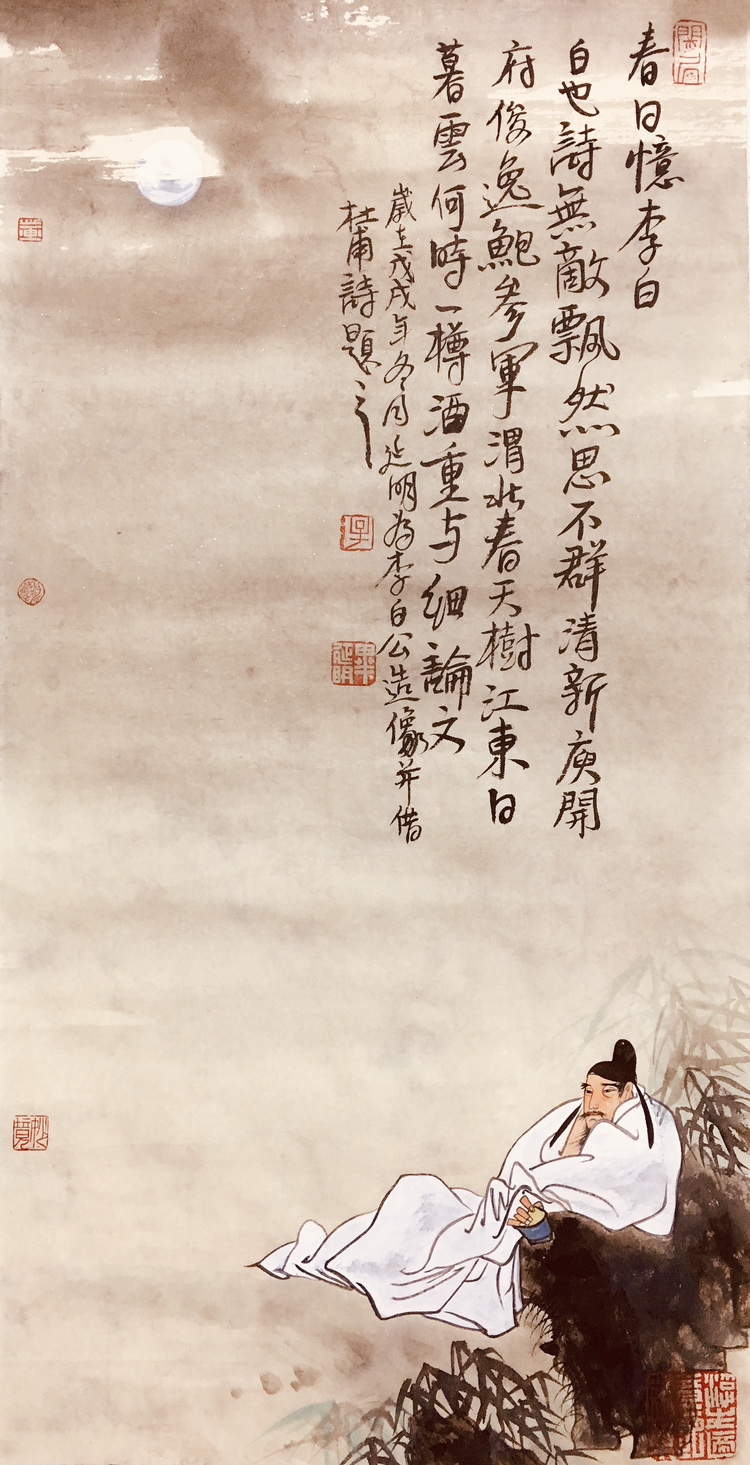 春日憶李白
白也詩無敵飄然思不群清新庾開
府俊逸鮑參軍渭北春天樹江東日
暮雲何時一樽酒重与細論文
歲在戊戌年冬月延明為李白公造像并借
杜甫詩題之